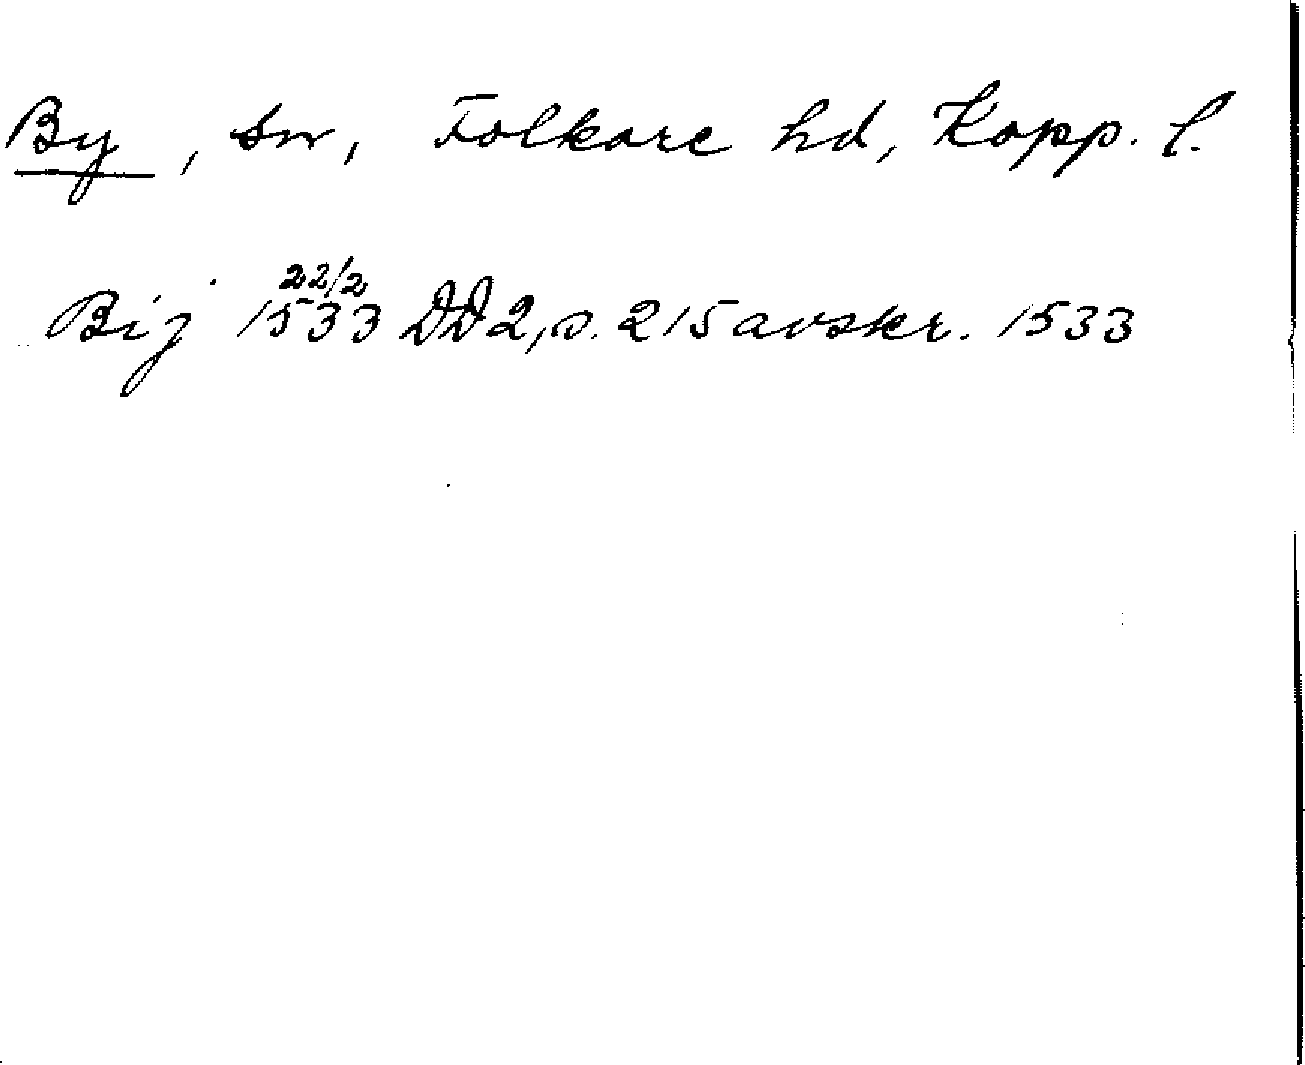 By, sn, Folkare hd, Kopp. l.
Bij 22/2 1533 DD2, s. 215 avskr. 1533